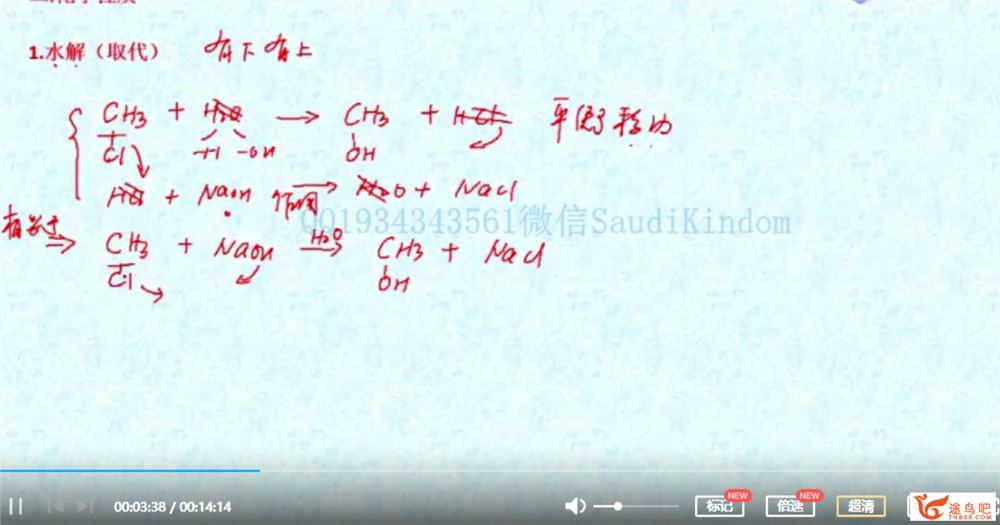 1.水解（取代） 有下有上
CH3 + H2O → CH3 + HCl 平衡移动
Cl -H -OH OH
HCl + NaOH 作用 → H2O + NaCl
QQ1934343561微信SaudiKindom
相当于 ⇒ CH3 + NaOH H2O → CH3 + NaCl
Cl OH
00:03:38 / 00:14:14
标记 NEW 倍速 NEW 超清
途鸟吧
TNBZS.COM